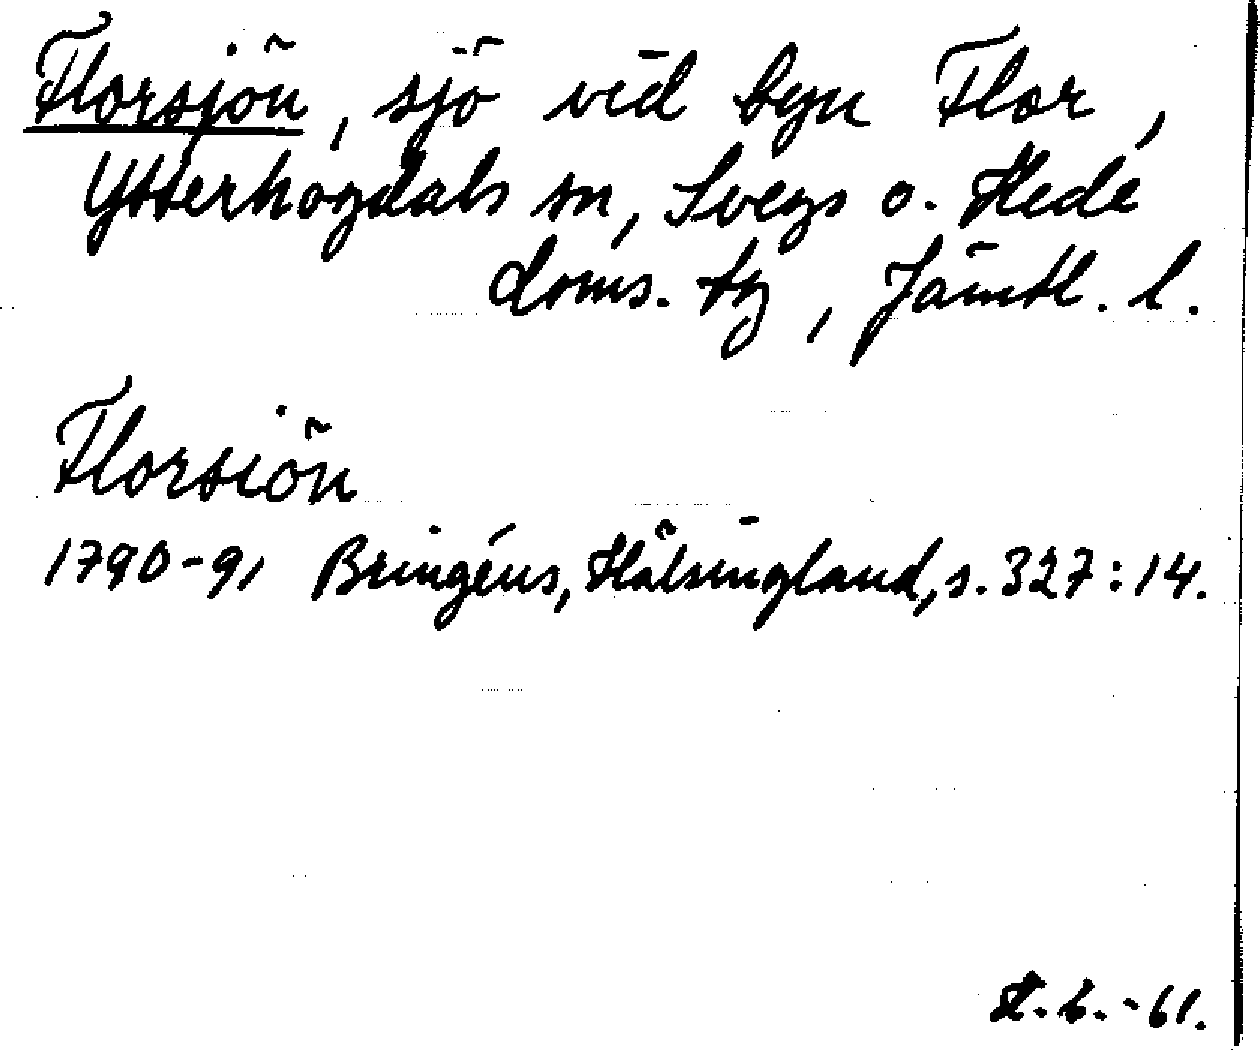 Florsjön, sjö vid byn Flor,
Ytterhogdals sn, Svegs o. Hede
doms. tg, Jämtl. l.
Florsiön
1790-91 Bringéus, Hälsingland, s. 327:14.
H. b. -61.